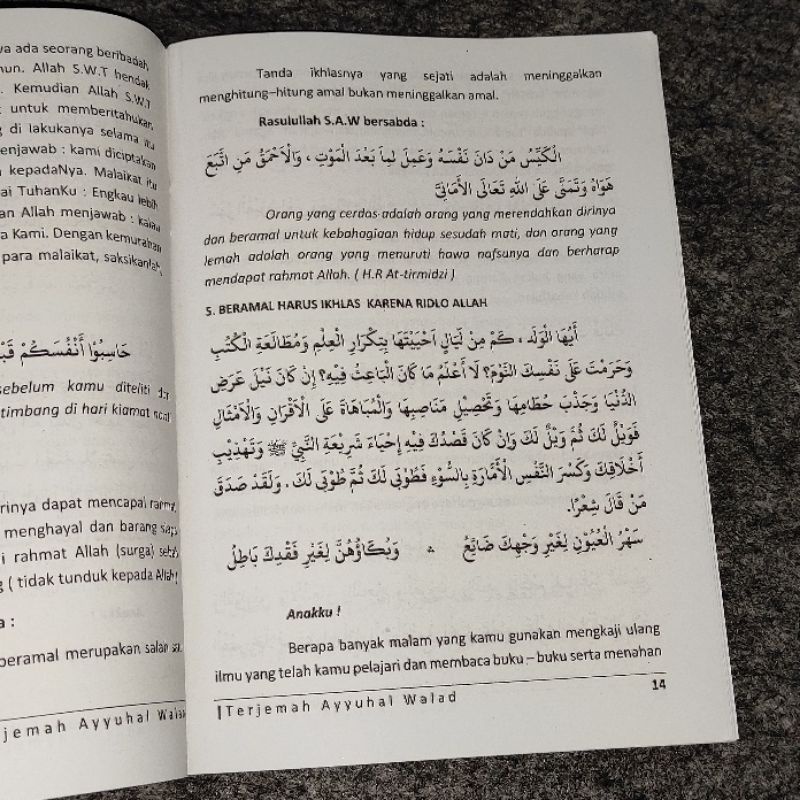 ya ada seorang beribadah
hun. Allah S.W.T hendak
. Kemudian Allah S.W.T
untuk memberitahukan
di lakukanya selama itu
enjawab : kami diciptakan
kepadaNya. Malaikat itu
ai TuhanKu : Engkau lebih
an Allah menjawab : kalau
a Kami. Dengan kemurahan
para malaikat, saksikanlah,
حَاسِبُوْا أَنْفُسَكُمْ قَبْ
sebelum kamu diteliti
timbang di hari kiamat
rinya dapat mencapai
menghayal dan barang
i rahmat Allah (surga)
( tidak tunduk kepada Allah
a :
beramal merupakan salah
jemah Ayyuhal
Tanda ikhlasnya yang sejati adalah meninggalkan
menghitung–hitung amal bukan meninggalkan amal.
Rasulullah S.A.W bersabda :
الْكَيِّسُ مَنْ دَانَ نَفْسَهُ وَعَمِلَ لِمَا بَعْدَ الْمَوْتِ ، وَالْاَحْمَقُ مَنِ اتَّبَعَ
هَوَاهُ وَتَمَنَّى عَلَى اللهِ تَعَالَى الْأَمَانِيَّ
Orang yang cerdas adalah orang yang merendahkan dirinya
dan beramal untuk kebahagiaan hidup sesudah mati, dan orang yang
lemah adalah orang yang menuruti hawa nafsunya dan berharap
mendapat rahmat Allah. ( H.R At-tirmidzi )
5. BERAMAL HARUS IKHLAS KARENA RIDLO ALLAH
أَيُّهَا الْوَلَد ، كَمْ مِنْ لَيَالٍ اَحْيَيْتَهَا بِتِكْرَارِ الْعِلْمِ وَمُطَالَعَةِ الْكُتُبِ
وَحَرَمْتَ عَلَى نَفْسِكَ النَّوْمَ؟ لَا أَعْلَمُ مَا كَانَ الْبَاعِثُ فِيْهِ؟ إِنْ كَانَ نَيْلَ عَرَضِ
الدُّنْيَا وَجَذْبَ حُطَامِهَا وَتَحْصِيْلَ مَنَاصِبِهَا وَالْمُبَاهَاةَ عَلَى الْاَقْرَانِ وَالْاَمْثَالِ
فَوَيْلٌ لَكَ ثُمَّ وَيْلٌ لَكَ وَاِنْ كَانَ قَصْدُكَ فِيْهِ إِحْيَاءَ شَرِيْعَةِ النَّبِيِّ ﷺ وَتَهْذِيْبَ
أَخْلَاقِكَ وَكَسْرَ النَّفْسِ الْأَمَّارَةِ بِالسُّوْءِ فَطُوْبَى لَكَ ثُمَّ طُوْبَى لَكَ . وَلَقَدْ صَدَقَ
مَنْ قَالَ شِعْرًا.
سَهْرُ الْعُيُوْنِ لِغَيْرِ وَجْهِكَ ضَائِعُ وَبُكَاؤُهُنَّ لِغَيْرِ فَقْدِكَ بَاطِلُ
Anakku !
Berapa banyak malam yang kamu gunakan mengkaji ulang
ilmu yang telah kamu pelajari dan membaca buku – buku serta menahan
14
Terjemah Ayyuhal Walad